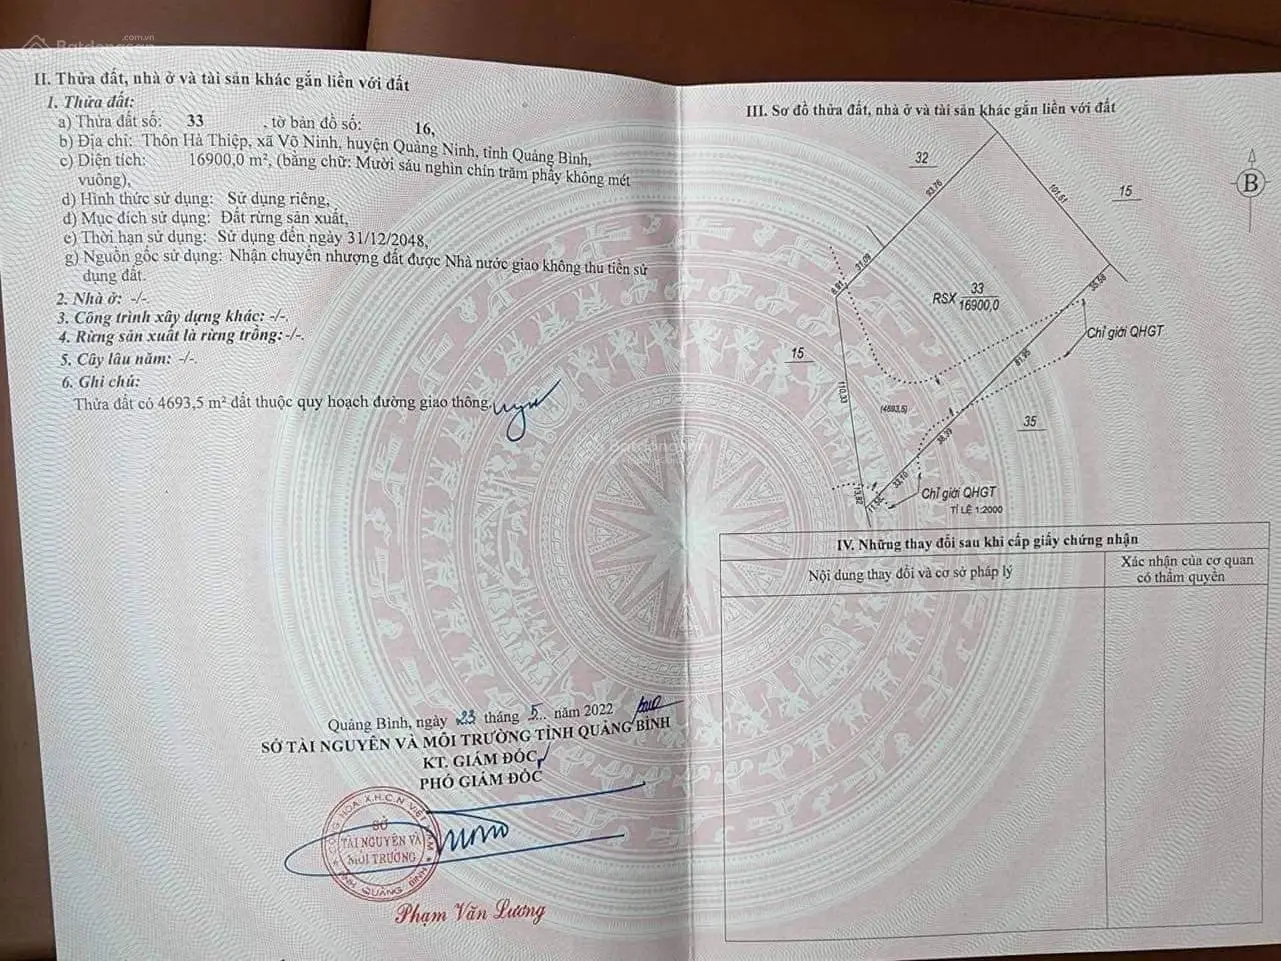 Batdongsan.com.vn
II. Thửa đất, nhà ở và tài sản khác gắn liền với đất
1. Thửa đất:
a) Thửa đất số: 33 , tờ bản đồ số: 16,
b) Địa chỉ: Thôn Hà Thiệp, xã Võ Ninh, huyện Quảng Ninh, tỉnh Quảng Bình,
c) Diện tích: 16900,0 m², (bằng chữ: Mười sáu nghìn chín trăm phẩy không mét
vuông),
d) Hình thức sử dụng: Sử dụng riêng,
đ) Mục đích sử dụng: Đất rừng sản xuất,
e) Thời hạn sử dụng: Sử dụng đến ngày 31/12/2048,
g) Nguồn gốc sử dụng: Nhận chuyển nhượng đất được Nhà nước giao không thu tiền sử
dụng đất.
2. Nhà ở: -/-.
3. Công trình xây dựng khác: -/-.
4. Rừng sản xuất là rừng trồng: -/-.
5. Cây lâu năm: -/-.
6. Ghi chú:
Thửa đất có 4693,5 m² đất thuộc quy hoạch đường giao thông.
Quảng Bình, ngày 23 tháng 5 năm 2022
SỞ TÀI NGUYÊN VÀ MÔI TRƯỜNG TỈNH QUẢNG BÌNH
KT. GIÁM ĐỐC
PHÓ GIÁM ĐỐC
CỘNG HÒA X.H.C.N VIỆT NAM
SỞ
TÀI NGUYÊN VÀ
MÔI TRƯỜNG
TỈNH QUẢNG BÌNH
Phạm Văn Lương
III. Sơ đồ thửa đất, nhà ở và tài sản khác gắn liền với đất
32
93.76
101.61
15
B
31.09
6.91
RSX 33
16900,0
35.59
Chỉ giới QHGT
15
81.95
110.33
(4693,5)
35
38.39
33.10
13.82
11.52
Chỉ giới QHGT
TỈ LỆ 1:2000
IV. Những thay đổi sau khi cấp giấy chứng nhận
Nội dung thay đổi và cơ sở pháp lý
Xác nhận của cơ quan
có thẩm quyền
Batdongsan